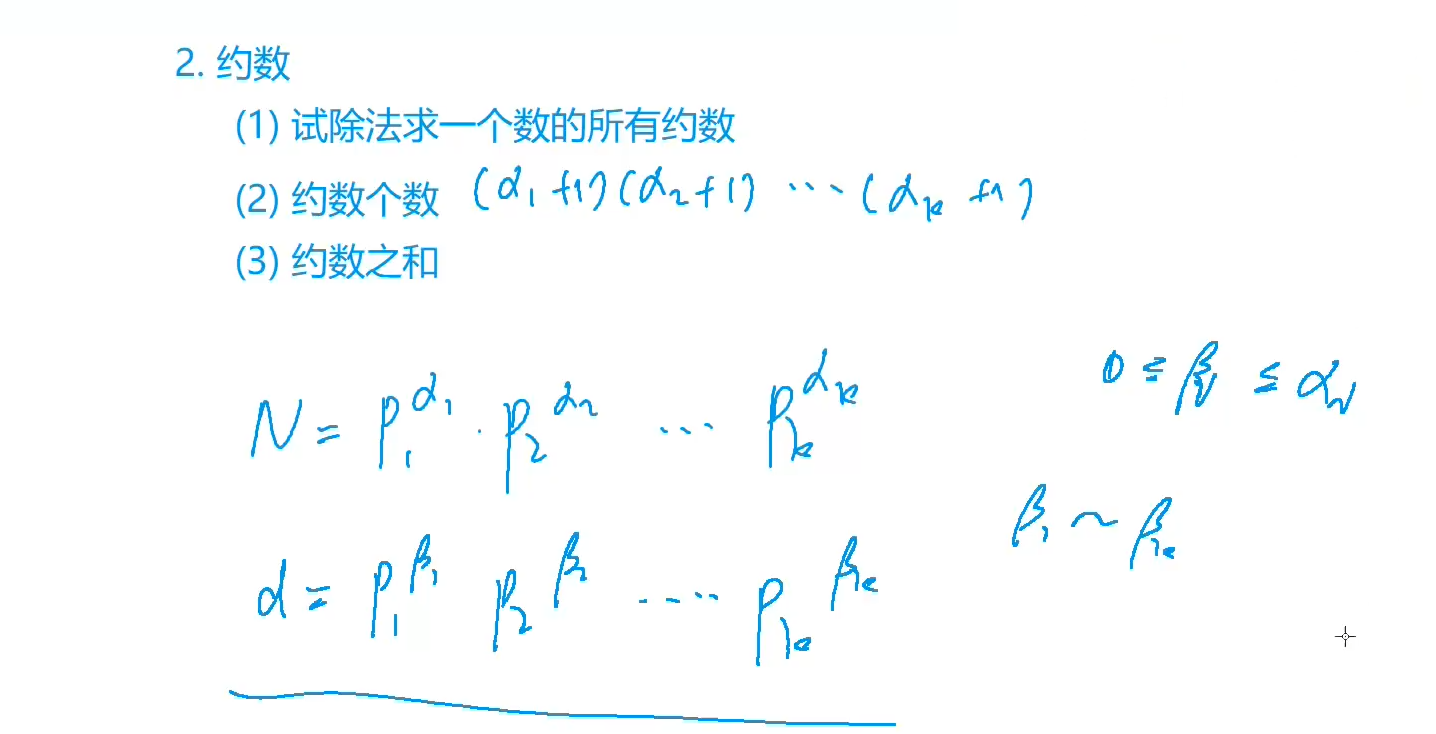 2. 约数
(1) 试除法求一个数的所有约数
(2) 约数个数 (α₁+1)(α₂+1) ⋯ (αₖ+1)
(3) 约数之和
0 ≤ βᵢ ≤ αᵢ
N = P₁^α₁ · P₂^α₂ ⋯ Pₖ^αₖ
β₁ ~ βₖ
d = P₁^β₁ P₂^β₂ ⋯⋅ Pₖ^βₖ